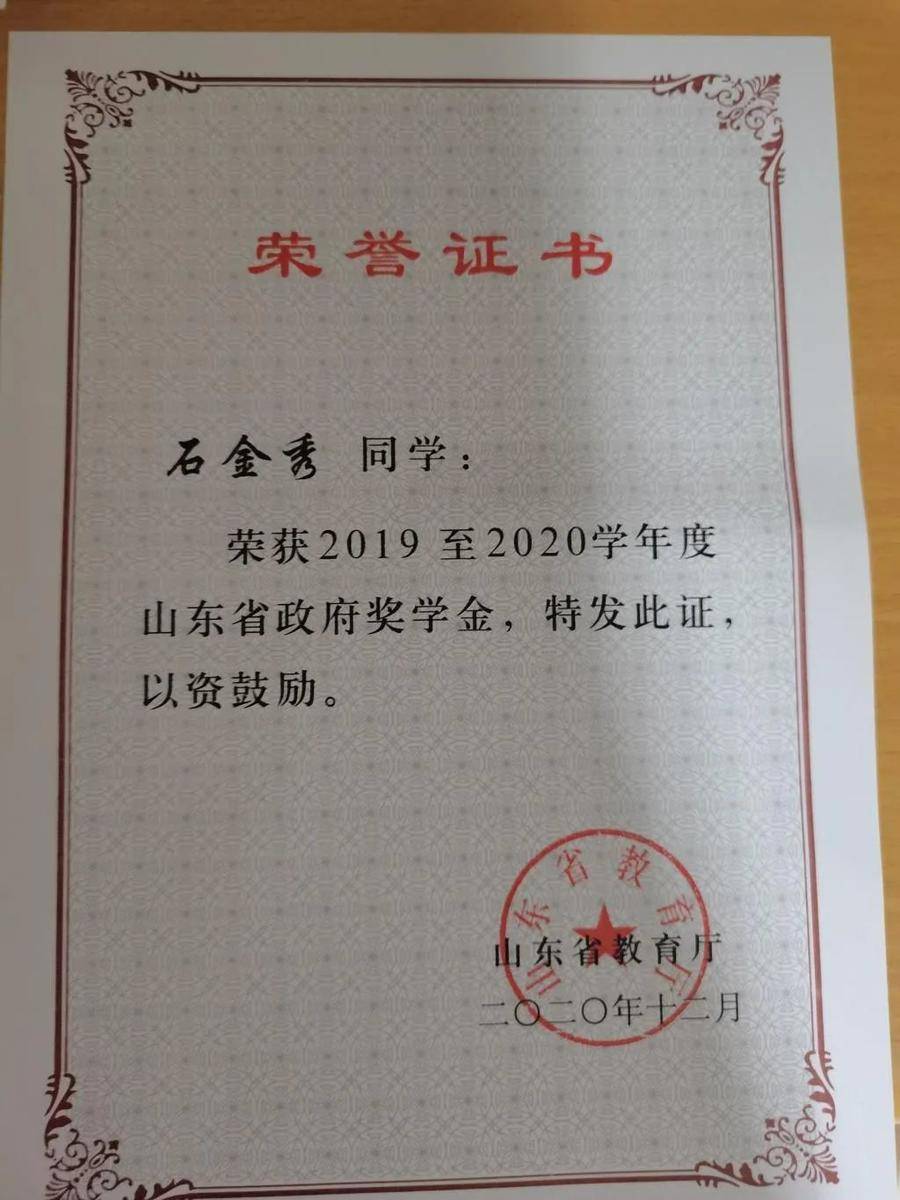 荣誉证书
石金秀 同学：
荣获2019 至2020学年度
山东省政府奖学金，特发此证，
以资鼓励。
山东省教育厅
山东省教育厅
二〇二〇年十二月